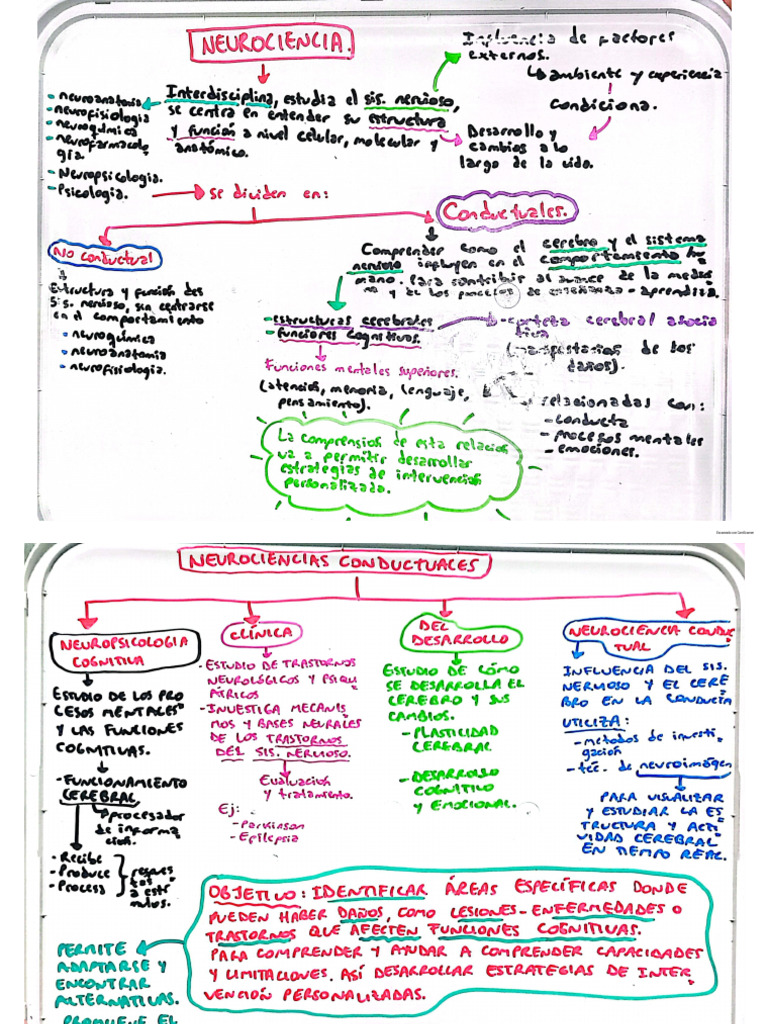 NEUROCIENCIA.
Interdisciplina, estudia el sis. nervioso,
se centra en entender su estructura
y función a nivel celular, molecular y
anatómico.
Influencia de factores
externos.
ambiente y experiencia
condiciona.
Desarrollo y
cambios a lo
largo de la vida.
- neuroanatomia
- neurofisiologia
- neuroquímica
- neurofarmacolo
gía.
- Neuropsicologia.
- Psicologia.
se dividen en:
No conductual
Estructura y función des
Sis. nervioso, sin centrarse
en el comportamiento
• neuroquímica
• neuroanatomia
• neurofisiologia.
Conductuales.
Comprender como el cerebro y el sistema
nervioso influyen en el comportamiento hu
mano. Para contribir al avance de la medici
na y de los procesos de enseñanza - aprendizaje.
- estructuras cerebrales
- funciones cognitivas.
Funciones mentales superiores.
(atención, memoria, lenguaje,
pensamiento).
- corteza cerebral asocia
tiva
de los
daños).
relacionadas con:
- conducta
- procesos mentales
- emociones.
La comprensión de esta relación
va a permitir desarrollar
estrategias de intervención
personalizada.
Escaneado con CamScanner
NEUROCIENCIAS CONDUCTUALES
NEUROPSICOLOGIA
COGNITIVA
ESTUDIO DE LOS PRO
CESOS MENTALES
Y LAS FUNCIONES
COGNITIVAS.
- FUNCIONAMIENTO
CEREBRAL
procesador
de informa
ción.
- Recibe
- Produce
- Procesa
respues
tas
a estí
mulos.
CLÍNICA
- ESTUDIO DE TRASTORNOS
NEUROLÓGICOS Y PSIQUI
ÁTRICOS
- INVESTIGA MECANIS
MOS Y BASES NEURALES
DE LOS TRASTORNOS
DEL SIS. NERVIOSO.
Evaluación
y tratamiento.
Ej:
- Parkinson
- Epilepsia
DEL
DESARROLLO
ESTUDIO DE CÓMO
SE DESARROLLA EL
CEREBRO Y SUS
CAMBIOS.
- PLASTICIDAD
CEREBRAL
- DESARROLLO
COGNITIVO
Y EMOCIONAL.
NEUROCIENCIA CONDUC
TUAL
INFLUENCIA DEL SIS.
NERVIOSO Y EL CERE
BRO EN LA CONDUCTA
UTILIZA:
- métodos de investi
gación
- téc. de neuroimágen
PARA VISUALIZAR
Y ESTUDIAR LA ES
TRUCTURA Y ACTI
VIDAD CEREBRAL
EN TIEMPO REAL.
OBJETIVO: IDENTIFICAR ÁREAS ESPECÍFICAS DONDE
PUEDEN HABER DAÑOS, COMO LESIONES - ENFERMEDADES O
TRASTORNOS QUE AFECTEN FUNCIONES COGNITIVAS.
PARA COMPRENDER Y AYUDAR A COMPRENDER CAPACIDADES
Y LIMITACIONES. ASÍ DESARROLLAR ESTRATEGIAS DE INTER
VENCIÓN PERSONALIZADAS.
PERMITE
ADAPTARSE Y
ENCONTRAR
ALTERNATIVAS.
PROMUEVE EL